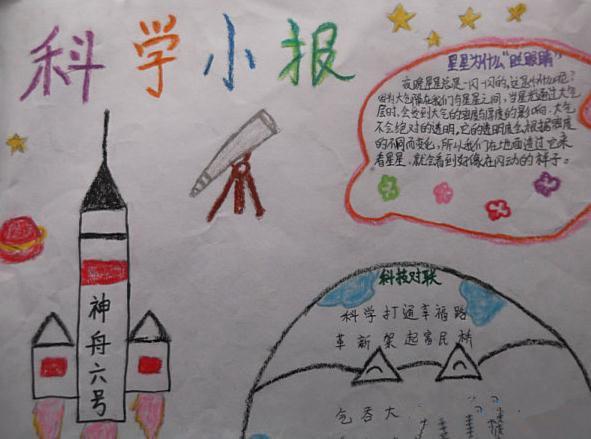 科学小报
星星为什么"眨眼睛"
夜晚星星总是一闪一闪的,这是什么呢?
因为大气隔在我们与星星之间,当星光通过大气
层时,会受到大气的密度与厚度的影响。大气
不会绝对的透明,它的透明度会根据密度
的不同而变化,所以我们在地面透过它来
看星星,就会看到好像在闪动的样子。
神舟六号
科技对联
科学打通幸福路
革新架起富民桥
包吞大